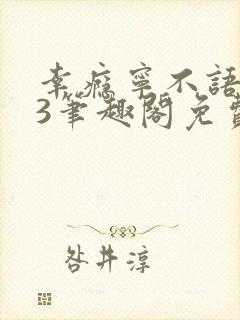 幸瘾寧不語
3筆趣閣免費
咎井淳